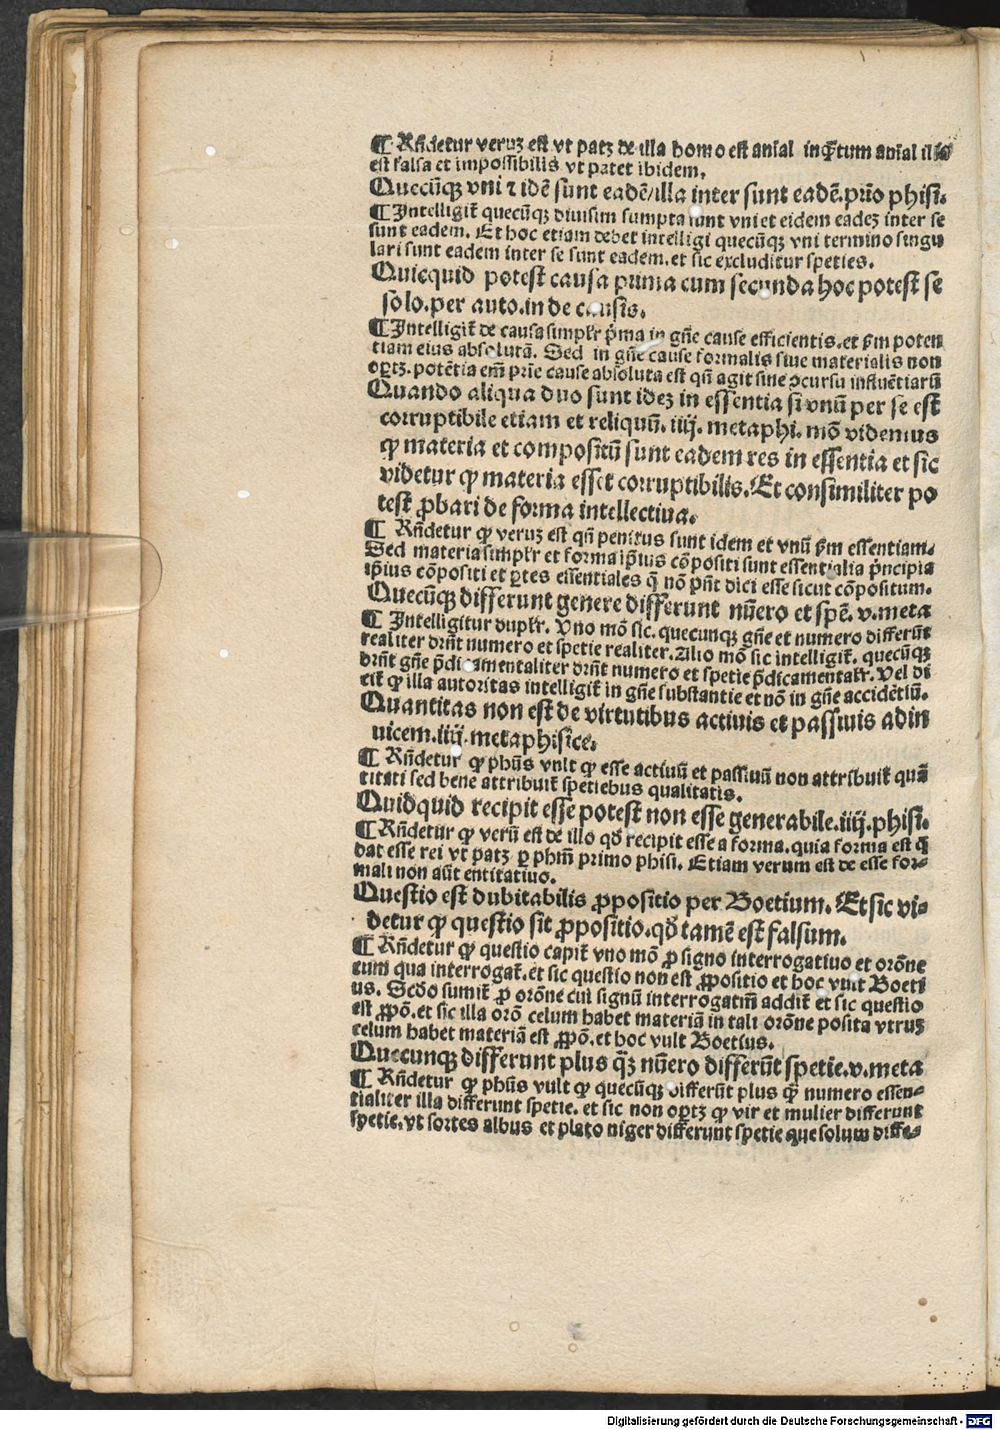 ¶ Rñdetur veruʒ est vt patʒ de illa homo est anīal inq̃tum anīal illa
est falsa et impossibilis vt patet ibidem.
Quecūqʒ vni ⁊ idē sunt eadē/illa inter sunt eadē.prīo phisi.
¶ Intelligit̃ quecūqʒ diuisim sumpta sunt vni et eidem eadeʒ inter se
sunt eadem. Et hoc etiam debet intelligi quecūqʒ vni termino singu
lari sunt eadem inter se sunt eadem.et sic excluditur speties.
Quicquid potest causa prima cum secunda hoc potest se
solo.per auto.in de causis.
¶ Intelligit̃ de causa simplr̃ p̃ma in gñe cause efficientis.et s̃m poten
tiam eius absolutā. Sed in gñe cause formalis siue materialis non
oꝑtʒ.potētia em̃ prie cause absoluta est qñ agit sine ꝯcursu influētiarū
Quando aliqua duo sunt ideʒ in essentia si vnū per se est
corruptibile etiam et reliquū.iiij.metaphi.mō videmus
ꝙ materia et compositū sunt eadem res in essentia et sic
videtur ꝙ materia esset corruptibilis.Et consimiliter po
test ꝓbari de forma intellectiua.
¶ Rñdetur ꝙ veruʒ est qñ penitus sunt idem et vnū s̃m essentiam.
Sed materia simplr̃ et forma ip̃ius cōpositi sunt essentialia p̃ncipia
ip̃ius cōpositi et ꝑtes essentiales q̃ nō pñt dici esse sicut cōpositum.
Quecūqʒ differunt genere differunt nūero et spē.v.meta
¶ Intelligitur duplr̃. Vno mō sic.quecunqʒ gñe et numero differūt
realiter drñt numero et spetie realiter.Alio mō sic intelligit̃.quecūqʒ
drñt gñe p̃dicamentaliter drñt numero et spetie p̃dicamentalr̃.Vel di
cit̃ ꝙ illa autoritas intelligit̃ in gñe substantie et nō in gñe accidētiū.
Quantitas non est de virtutibus actiuis et passiuis adin
uicem.iiij.metaphisice.
¶ Rñdetur ꝙ phūs vult ꝙ esse actiuū et passiuū non attribuit̃ quā
titati sed bene attribuit̃ spetiebus qualitatis.
Quidquid recipit esse potest non esse generabile.iiij.phisi.
¶ Rñdetur ꝙ verū est de illo qd̓ recipit esse a forma.quia forma est q̃
dat esse rei vt patʒ ꝑ phm̃ primo phisi. Etiam verum est de esse for-
mali non aūt entitatiuo.
Questio est dubitabilis ꝓpositio per Boetium. Et sic vi-
detur ꝙ questio sit ꝓpositio.qd̓ tamē est falsum.
¶ Rñdetur ꝙ questio capit̃ vno mō ꝓ signo interrogatiuo et orōne
cum qua interrogat̃.et sic questio non est ꝓpositio et hoc vult Boeti
us. Scd̓o sumit̃ ꝓ orōne cui signū interrogatm̃ addit̃ et sic questio
est ꝓpō.et sic illa orō celum habet materiā in tali orōne posita vtruʒ
celum habet materiā est ꝓpō.et hoc vult Boetius.
Quecunqʒ differunt plus q̃ʒ nūero differūt spetie.v.meta
¶ Rñdetur ꝙ phūs vult ꝙ quecūqʒ differūt plus q̃ numero essen-
tialiter illa differunt spetie. et sic non oꝑtʒ ꝙ vir et mulier differunt
spetie.vt sortes albus et plato niger differunt spetie que solum diffe-
Digitalisierung gefördert durch die Deutsche Forschungsgemeinschaft - DFG